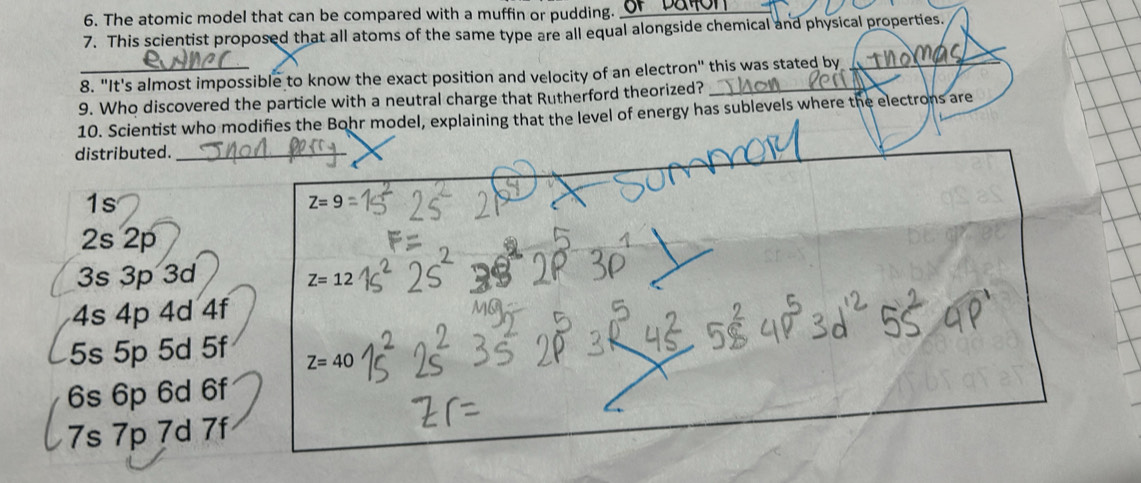 6. The atomic model that can be compared with a muffin or pudding. Of Dalton
7. This scientist proposed that all atoms of the same type are all equal alongside chemical and physical properties.
8. "It's almost impossible to know the exact position and velocity of an electron" this was stated by Thomas
9. Who discovered the particle with a neutral charge that Rutherford theorized? Jhon Perry
10. Scientist who modifies the Bohr model, explaining that the level of energy has sublevels where the electrons are
distributed. Jhon perry
summary
1s
2s 2p
3s 3p 3d
4s 4p 4d 4f
5s 5p 5d 5f
6s 6p 6d 6f
7s 7p 7d 7f
Z= 9 = 1s² 2s² 2p
F=
Z= 12 1s² 2s² 2p⁵ 3p¹
Mg=
Z= 40 1s² 2s² 3s² 2p⁵ 3p⁵ 4s² 5s² 4p⁵ 3d¹² 5s² 4p¹
Zr=